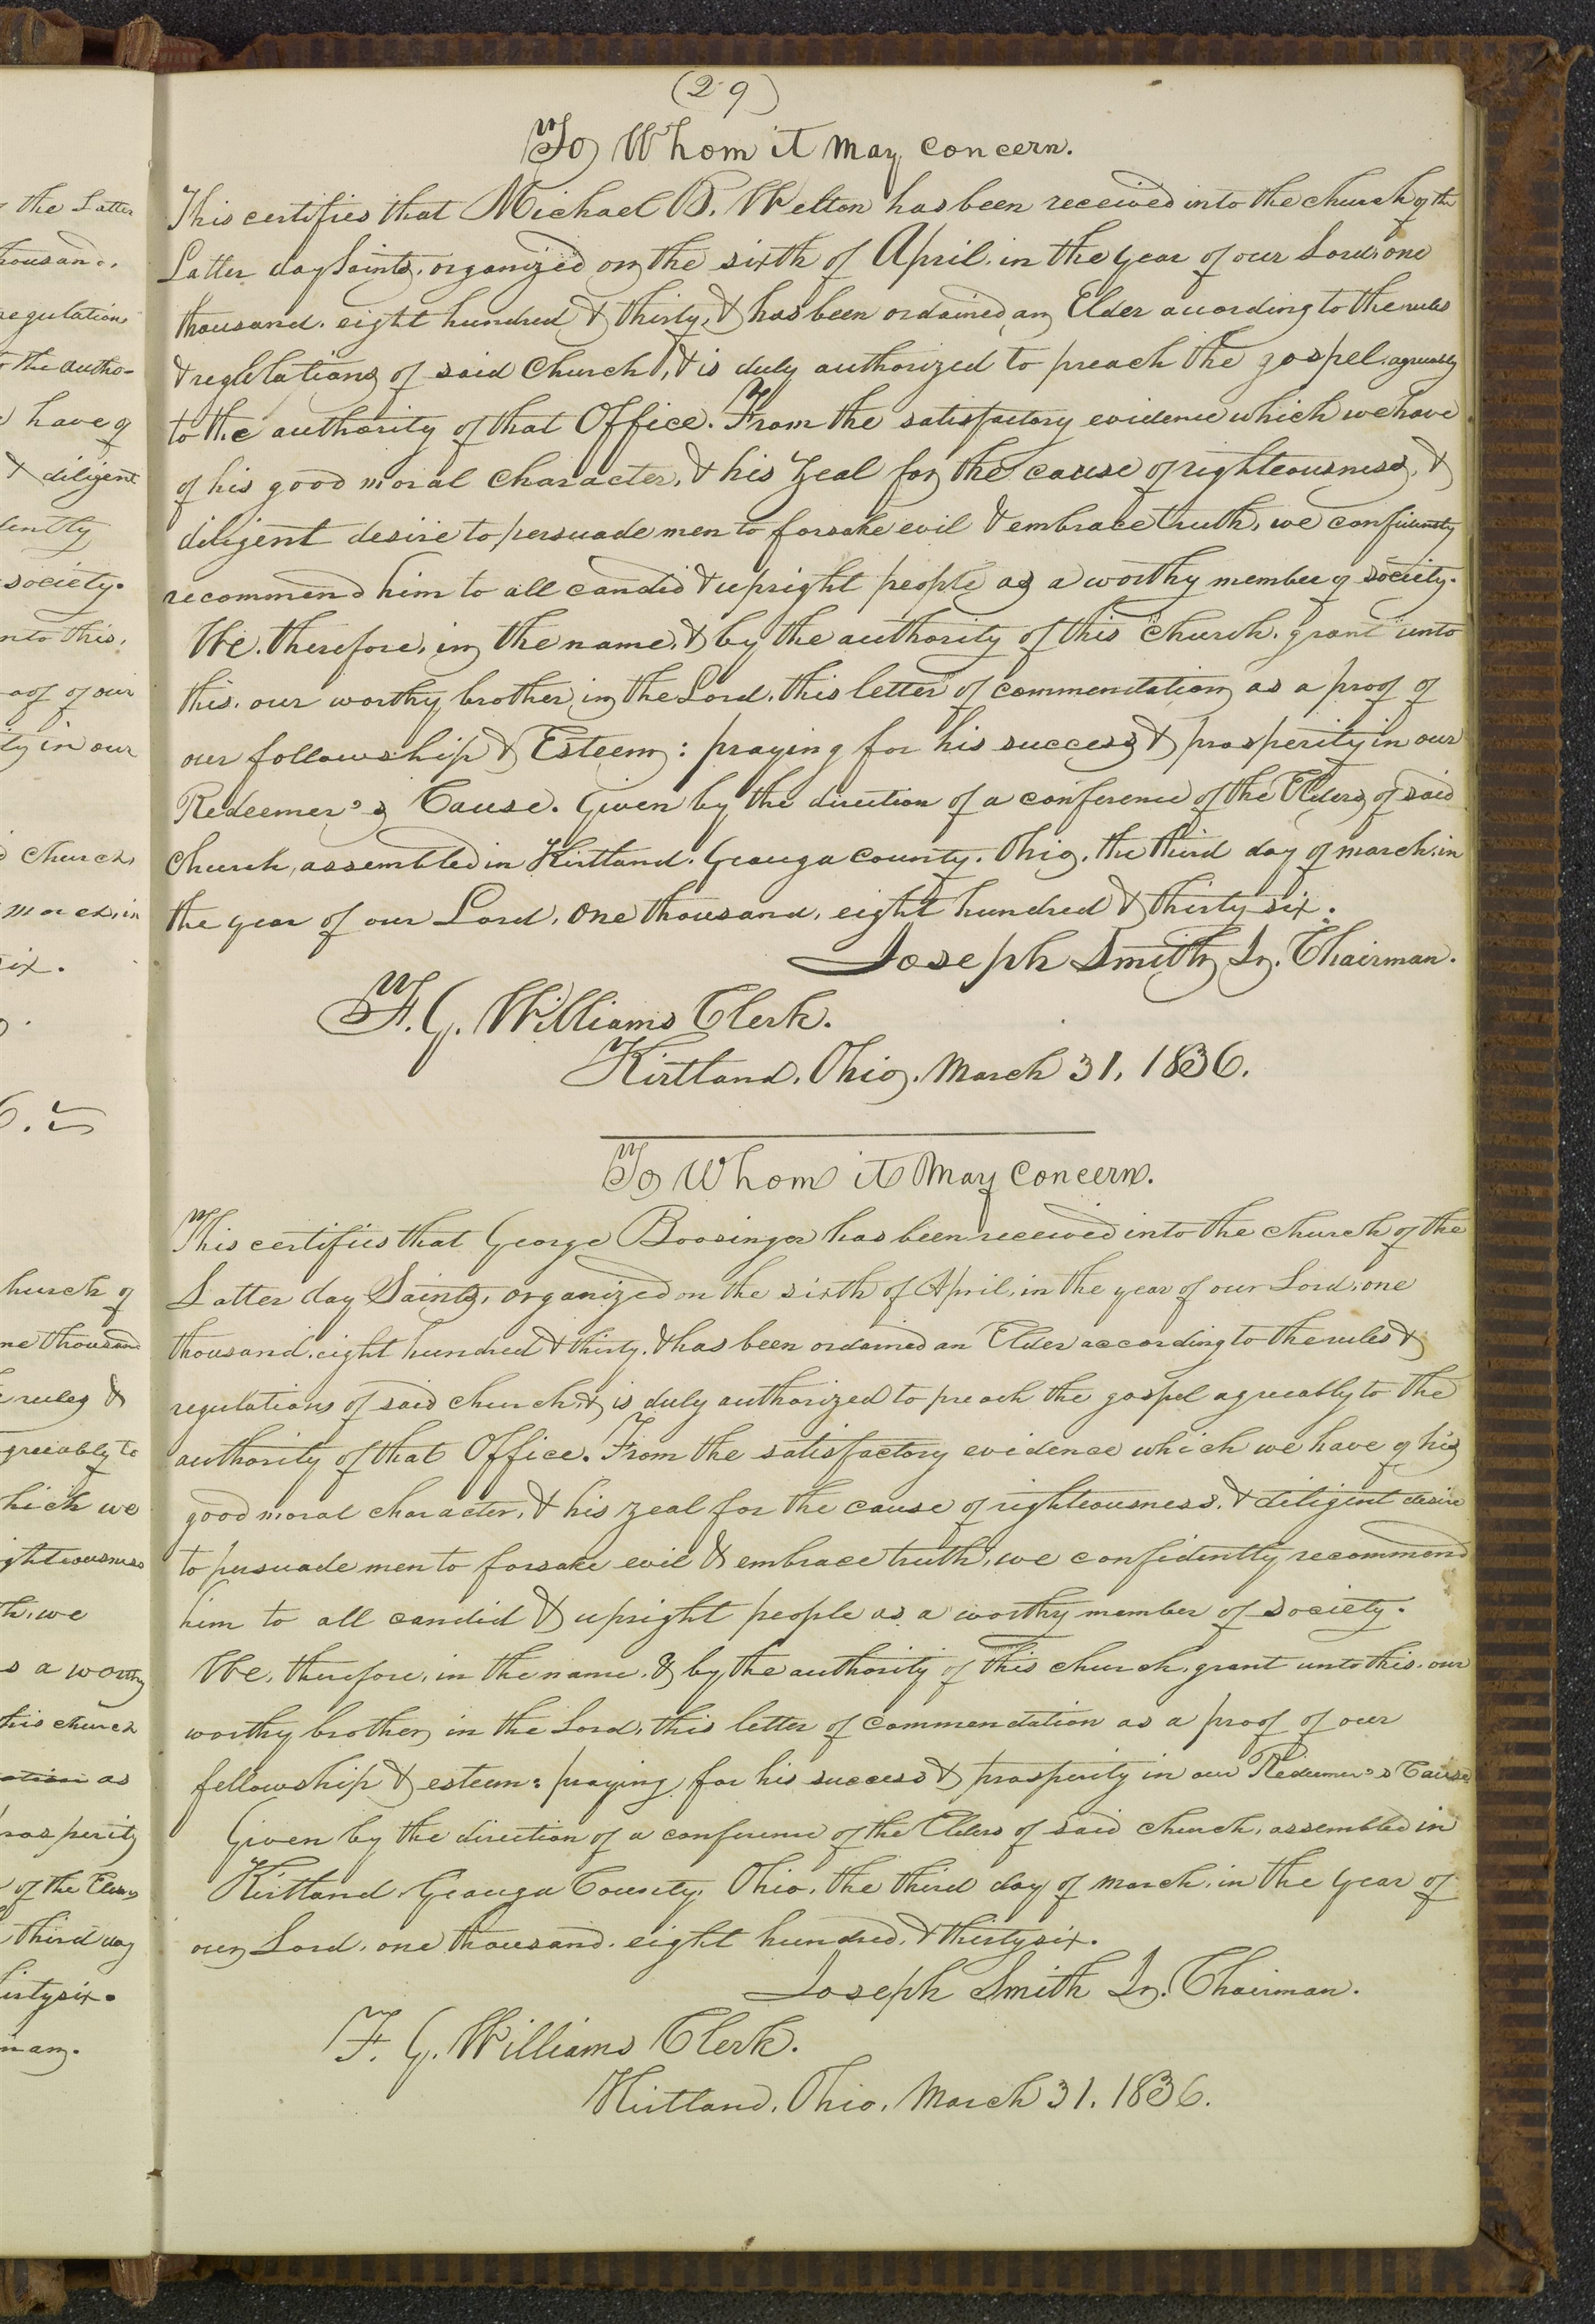 (29)
To Whom it May concern.
This certifies that Michael B. Welton has been received into the church of the
Latter day Saints, organized on the sixth of April, in the year of our Lord, one
thousand, eight hundred & thirty, & has been ordained an Elder according to the rules
& regulations of said Church, & is duly authorized to preach the gospel, agreeably
to the authority of that Office. From the satisfactory evidence which we have
of his good moral character, & his zeal for the cause of righteousness, &
diligent desire to persuade men to forsake evil & embrace truth, we confidently
recommend him to all candid & upright people as a worthy member of society.
We, therefore, in the name, & by the authority of this church, grant unto
this, our worthy brother in the Lord, this letter of commendation as a proof of
our followship & Esteem: praying for his success & prosperity in our
Redeemer's Cause. Given by the direction of a conference of the Elders of said
Church, assembled in Kirtland, Geauga County, Ohio, the third day of march, in
the year of our Lord, one thousand, eight hundred & thirty six.
Joseph Smith Jr. Chairman.
F. G. Williams Clerk.
Kirtland, Ohio, March 31, 1836.
To Whom it May Concern.
This certifies that George Boosinger has been received into the church of the
Latter day Saints, organized on the sixth of April, in the year of our Lord, one
thousand, eight hundred & thirty, & has been ordained an Elder according to the rules &
regulations of said church, & is duly authorized to preach the gospel agreeably to the
authority of that Office. From the satisfactory evidence which we have of his
good moral character, & his zeal for the cause of righteousness, & diligent desire
to persuade men to forsake evil & embrace truth, we confidently recommend
him to all candid & upright people as a worthy member of society.
We, therefore, in the name, & by the authority of this church, grant unto this, our
worthy brother in the Lord, this letter of commendation as a proof of our
fellowship & esteem: praying for his success & prosperity in our Redeemer's Cause
Given by the direction of a conference of the Elders of said church, assembled in
Kirtland, Geauga County, Ohio, the third day of march, in the year of
our Lord, one thousand, eight hundred, & thirty six.
Joseph Smith Jr. Chairman.
F. G. Williams Clerk.
Kirtland, Ohio, March 31, 1836.